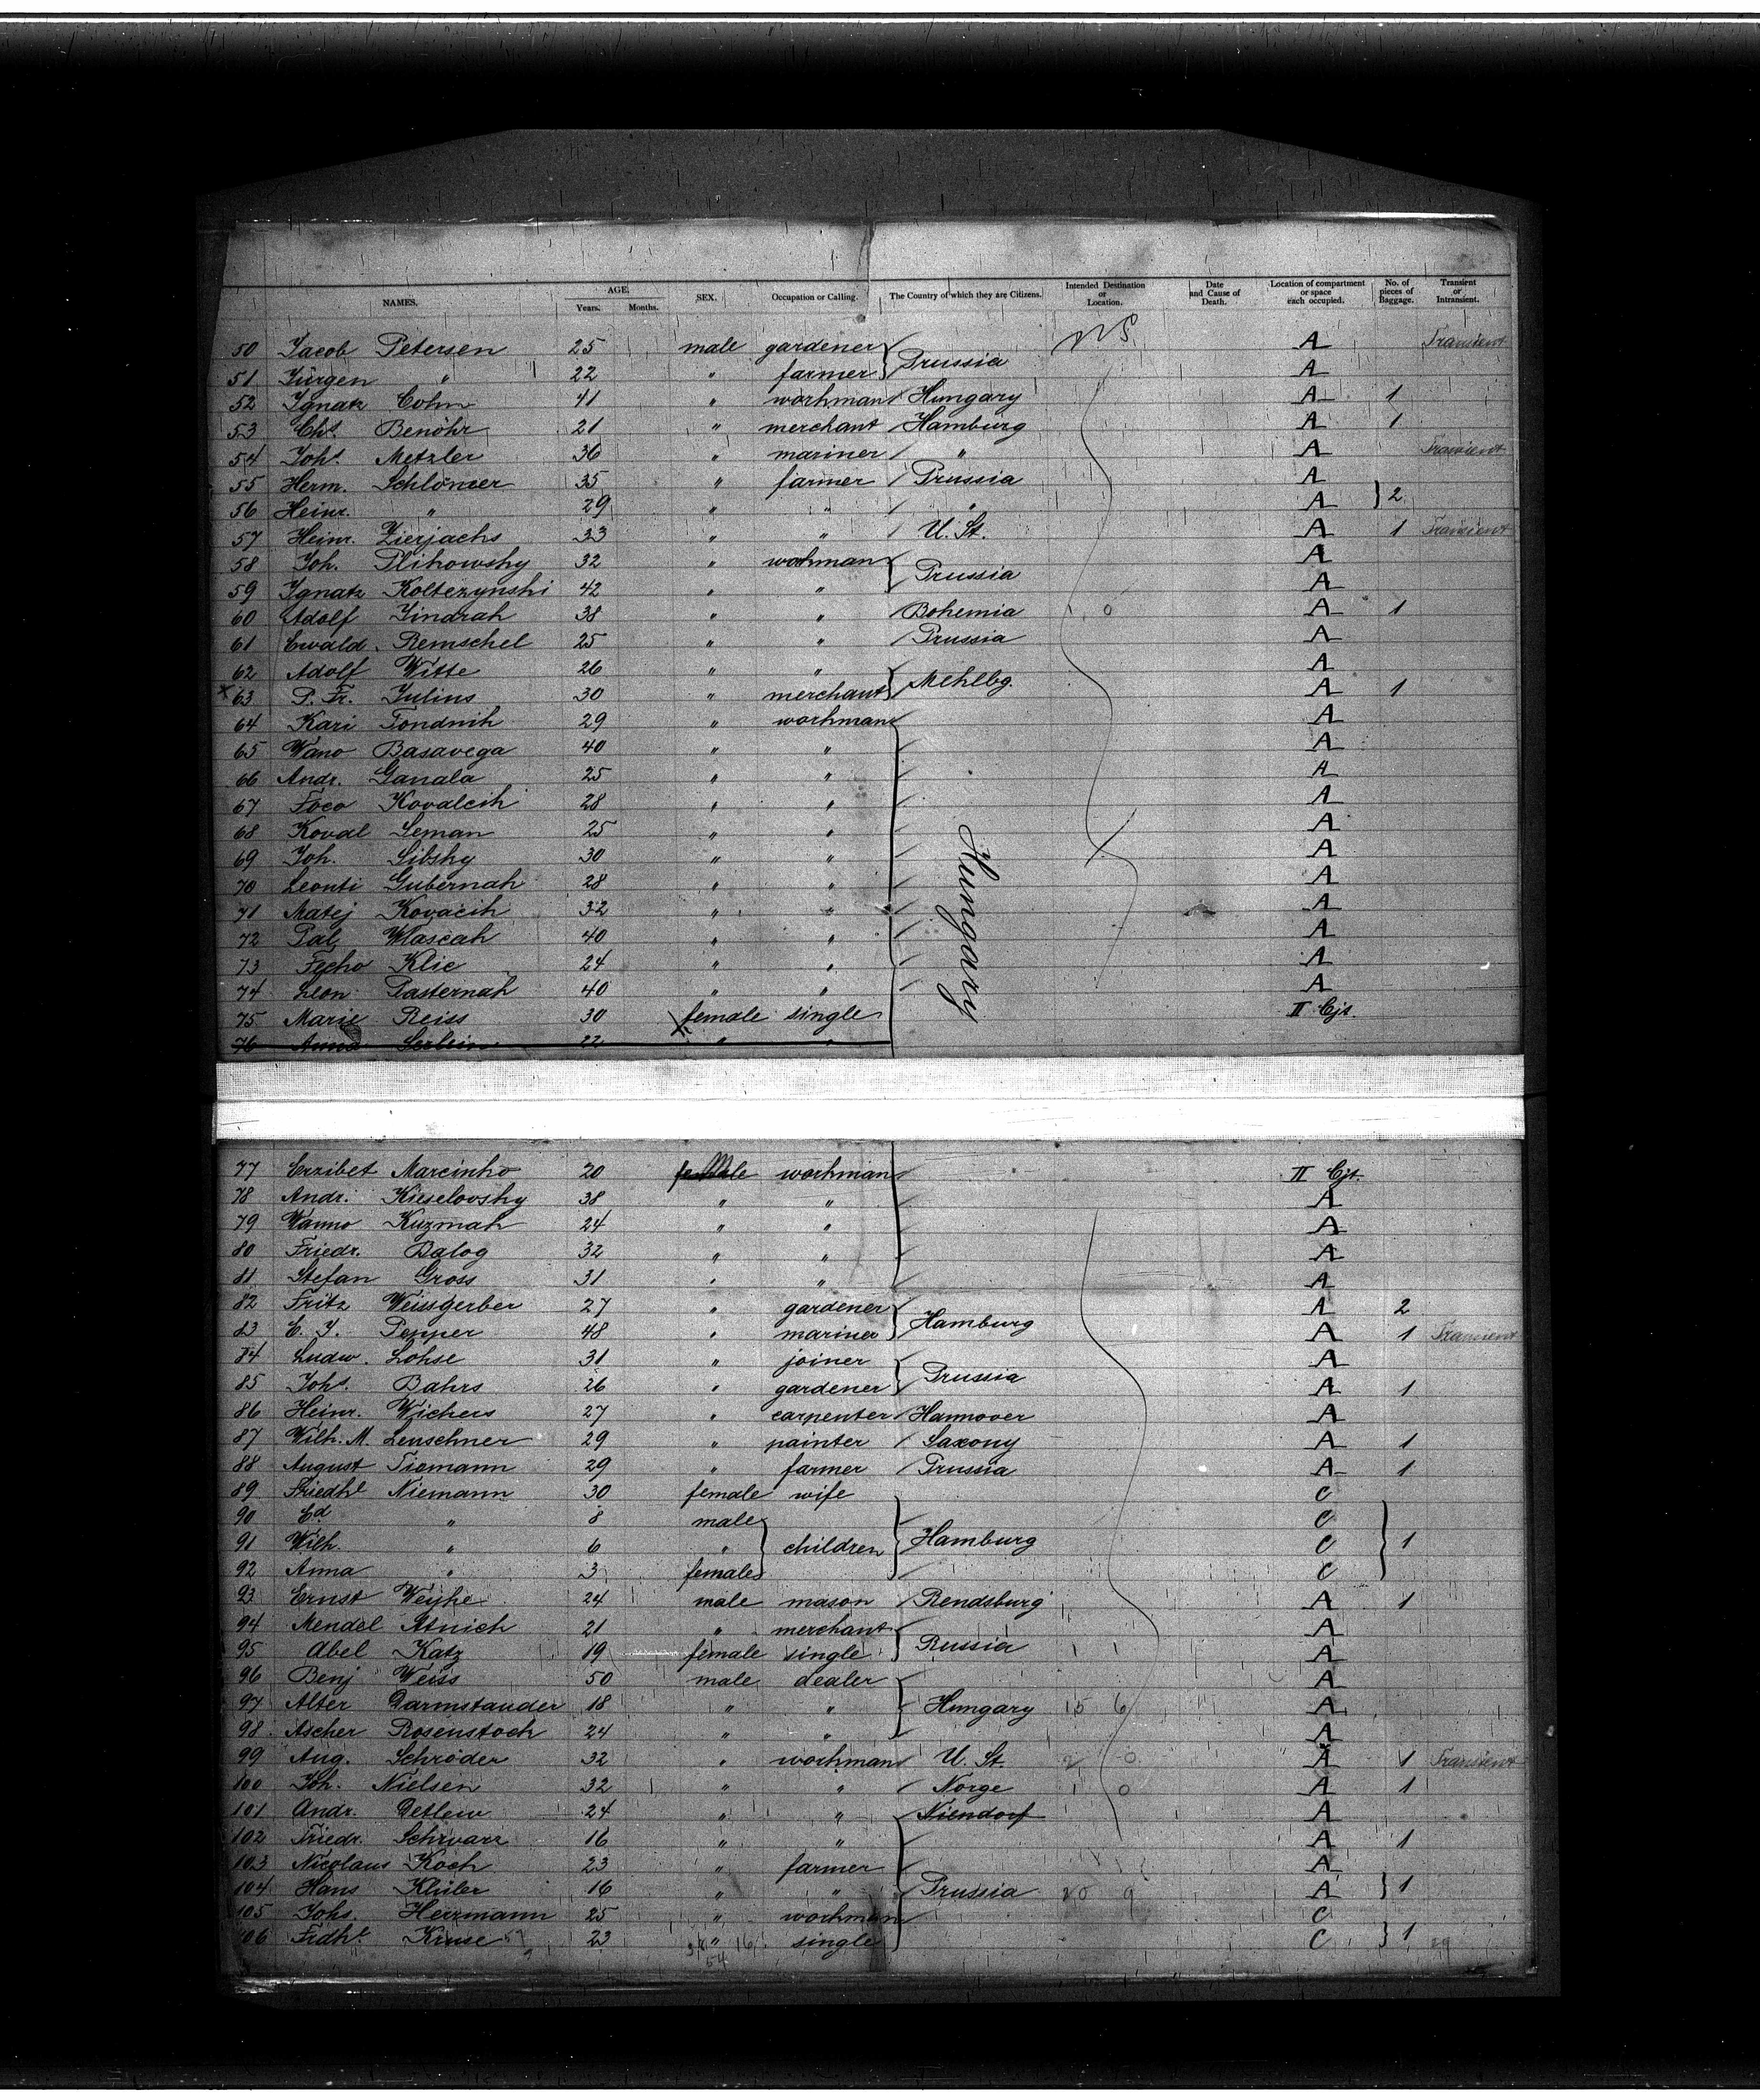 NAMES. AGE. Years. Months. SEX. Occupation or Calling. The Country of which they are Citizens. Intended Destination or Location. Date and Cause of Death. Location of compartment or space each occupied. No. of pieces of Baggage. Transient or Intransient.
50 Jacob Petersen 25 male gardener Prussia A Transient
51 Jürgen " 22 " farmer A
52 Ignatz Cohn 41 " workman Hungary A 1
53 Chs. Benöhr 21 " merchant Hamburg A 1
54 Johs. Metzler 36 " mariner " A Transient
55 Herm. Schlömer 35 " farmer Prussia A
56 Heinr. " 29 " " " A } 2
57 Heinr. Zierjacks 33 " " U. St. A 1 Transient
58 Joh. Plikowsky 32 " workman Prussia A
59 Ignatz Kolterzynski 42 " " A
60 Adolf Jindrak 38 " " Bohemia 1 0 A 1
61 Ewald Remschel 25 " " Prussia A
62 Adolf Witte 26 " " Mcklbg. A
x 63 P. Fr. Julius 30 " merchant A 1
64 Kari Fondnik 29 " workman A
65 Wano Basavega 40 " " A
66 Andr. Ganala 25 " " A
67 Foco Kovalcik 28 " " A
68 Koval Seman 25 " " A
69 Joh. Sibsky 30 " " Hungary A
70 Leonti Gubernak 28 " " A
71 Matej Kovacik 32 " " A
72 Pal Wlascak 40 " " A
73 Fecko Klic 24 " " A
74 Leon Pasternak 40 " " A
75 Marie Reiss 30 female single II Cjt.
76 Anna 22 " "
77 Erzibet Marcinko 20 workman II Cjt.
78 Andr. Kieselovsky 38 " " A
79 Wanno Kuzmak 24 " " A
80 Friedr. Balog 32 " " A
81 Stefan Gross 31 " " A
82 Fritz Weissgerber 27 " gardener Hamburg A 2
83 E. J. Pepper 48 " mariner A 1 Transient
84 Ludw. Lohse 31 " joiner Prussia A
85 Johs. Bahrs 26 " gardener A 1
86 Heinr. Wichers 27 " carpenter Hannover A
87 Wilh. M. Leuschner 29 " painter Saxony A 1
88 August Tiemann 29 " farmer Prussia A 1
89 Friedke Niemann 30 female wife C
90 Ed " 8 male C
91 Wilh. " 6 " children Hamburg C 1
92 Anna " 3 females C
93 Ernst Weyhe 24 male mason Rendsburg A 1
94 Mendel Atnich 21 " merchant Russia A
95 Abel Katz 19 female single A
96 Benj Weiss 50 male dealer A
97 Alter Darmstauder 18 " " Hungary 15 6 A
98 Ascher Rosenstock 24 " " A
99 Aug. Schröder 32 " workman U. St. 2 0 A 1 Transient
100 Joh. Nielsen 32 " " Norge 1 0 A 1
101 Andr. Detlew 24 " " Niendorf A
102 Friedr. Schwarz 16 " " A 1
103 Nicolaus Koch 23 " farmer A
104 Hans Klüler 16 " " Prussia 20 9 A } 1
105 Johs. Herrmann 25 " workman C
106 Frdke Kruse 23 " single C } 1
54